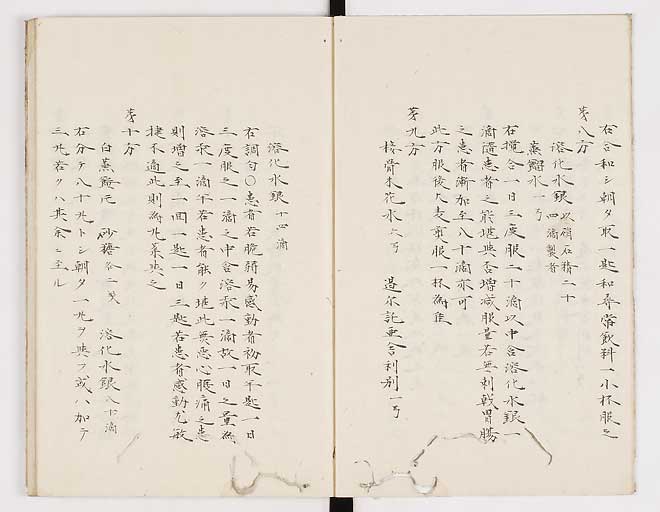 右合和シ朝夕取一匙和尋常飲料一小杯服之
第八方
溶化水銀 以硝石精二十四滴製者
蒸餾水一弓
右攪合一日三度服二十滴以中含溶化水銀一
滴隨患者之能堪與否增减服量若無刺戟胃腸
之患者漸加至八十滴亦可
此方服後大麦煎服一杯為佳
第九方
接骨木花水六弓 舎利別一弓
溶化水銀十四滴
右調匀〇患者若脆弱易感動者初取半匙一日
三度服之一滴之中含溶汞一滴故一日之量為
溶汞一滴半若患者能堪此無悪心腹痛之患
則増之至一回一匙一日三匙若患者感動尤敏
捷不適此則為丸薬與之
第十方
白蒸餾 砂糖各二 溶化水銀八十滴
右分テ八十丸トシ朝夕一丸ヲ與フ或ハ加テ
三丸若クハ其余ニ至ル